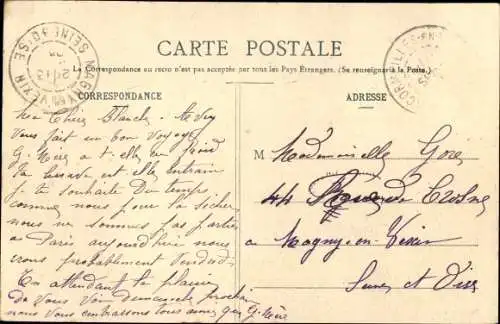 CARTE POSTALE
La Correspondance au recto n'est pas acceptée par tous les Pays Étrangers. (Se renseigner à la Poste.)
CORRESPONDANCE
ADRESSE
MAGNY-EN-VEXIN
SEINE-&-OISE
CORMEILLES-EN-
Ma Chère Blanche
Vous fait un bon Voyage
G. Mère a t-elle eu froid
La est elle en train
je te souhaite Du temps
comme nous pour la sécher
nous ne sommes pas parties
a Paris aujourd'hui nous
irons probablement Vendredi
En attendant le plaisir
de vous Voir Dimanche prochain
nous vous embrassons tous ainsi que G. Mère
M Mademoiselle Gore
44 Rue de Crosne
a Magny-en-Vexin
Seine et Oise